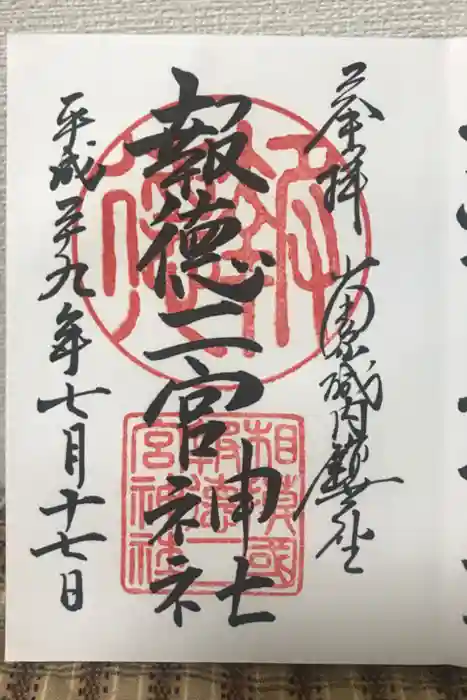 奉拝 小田原城内鎮座
報徳二宮神社
平成二十九年七月十七日
相模國
報徳二
宮神社